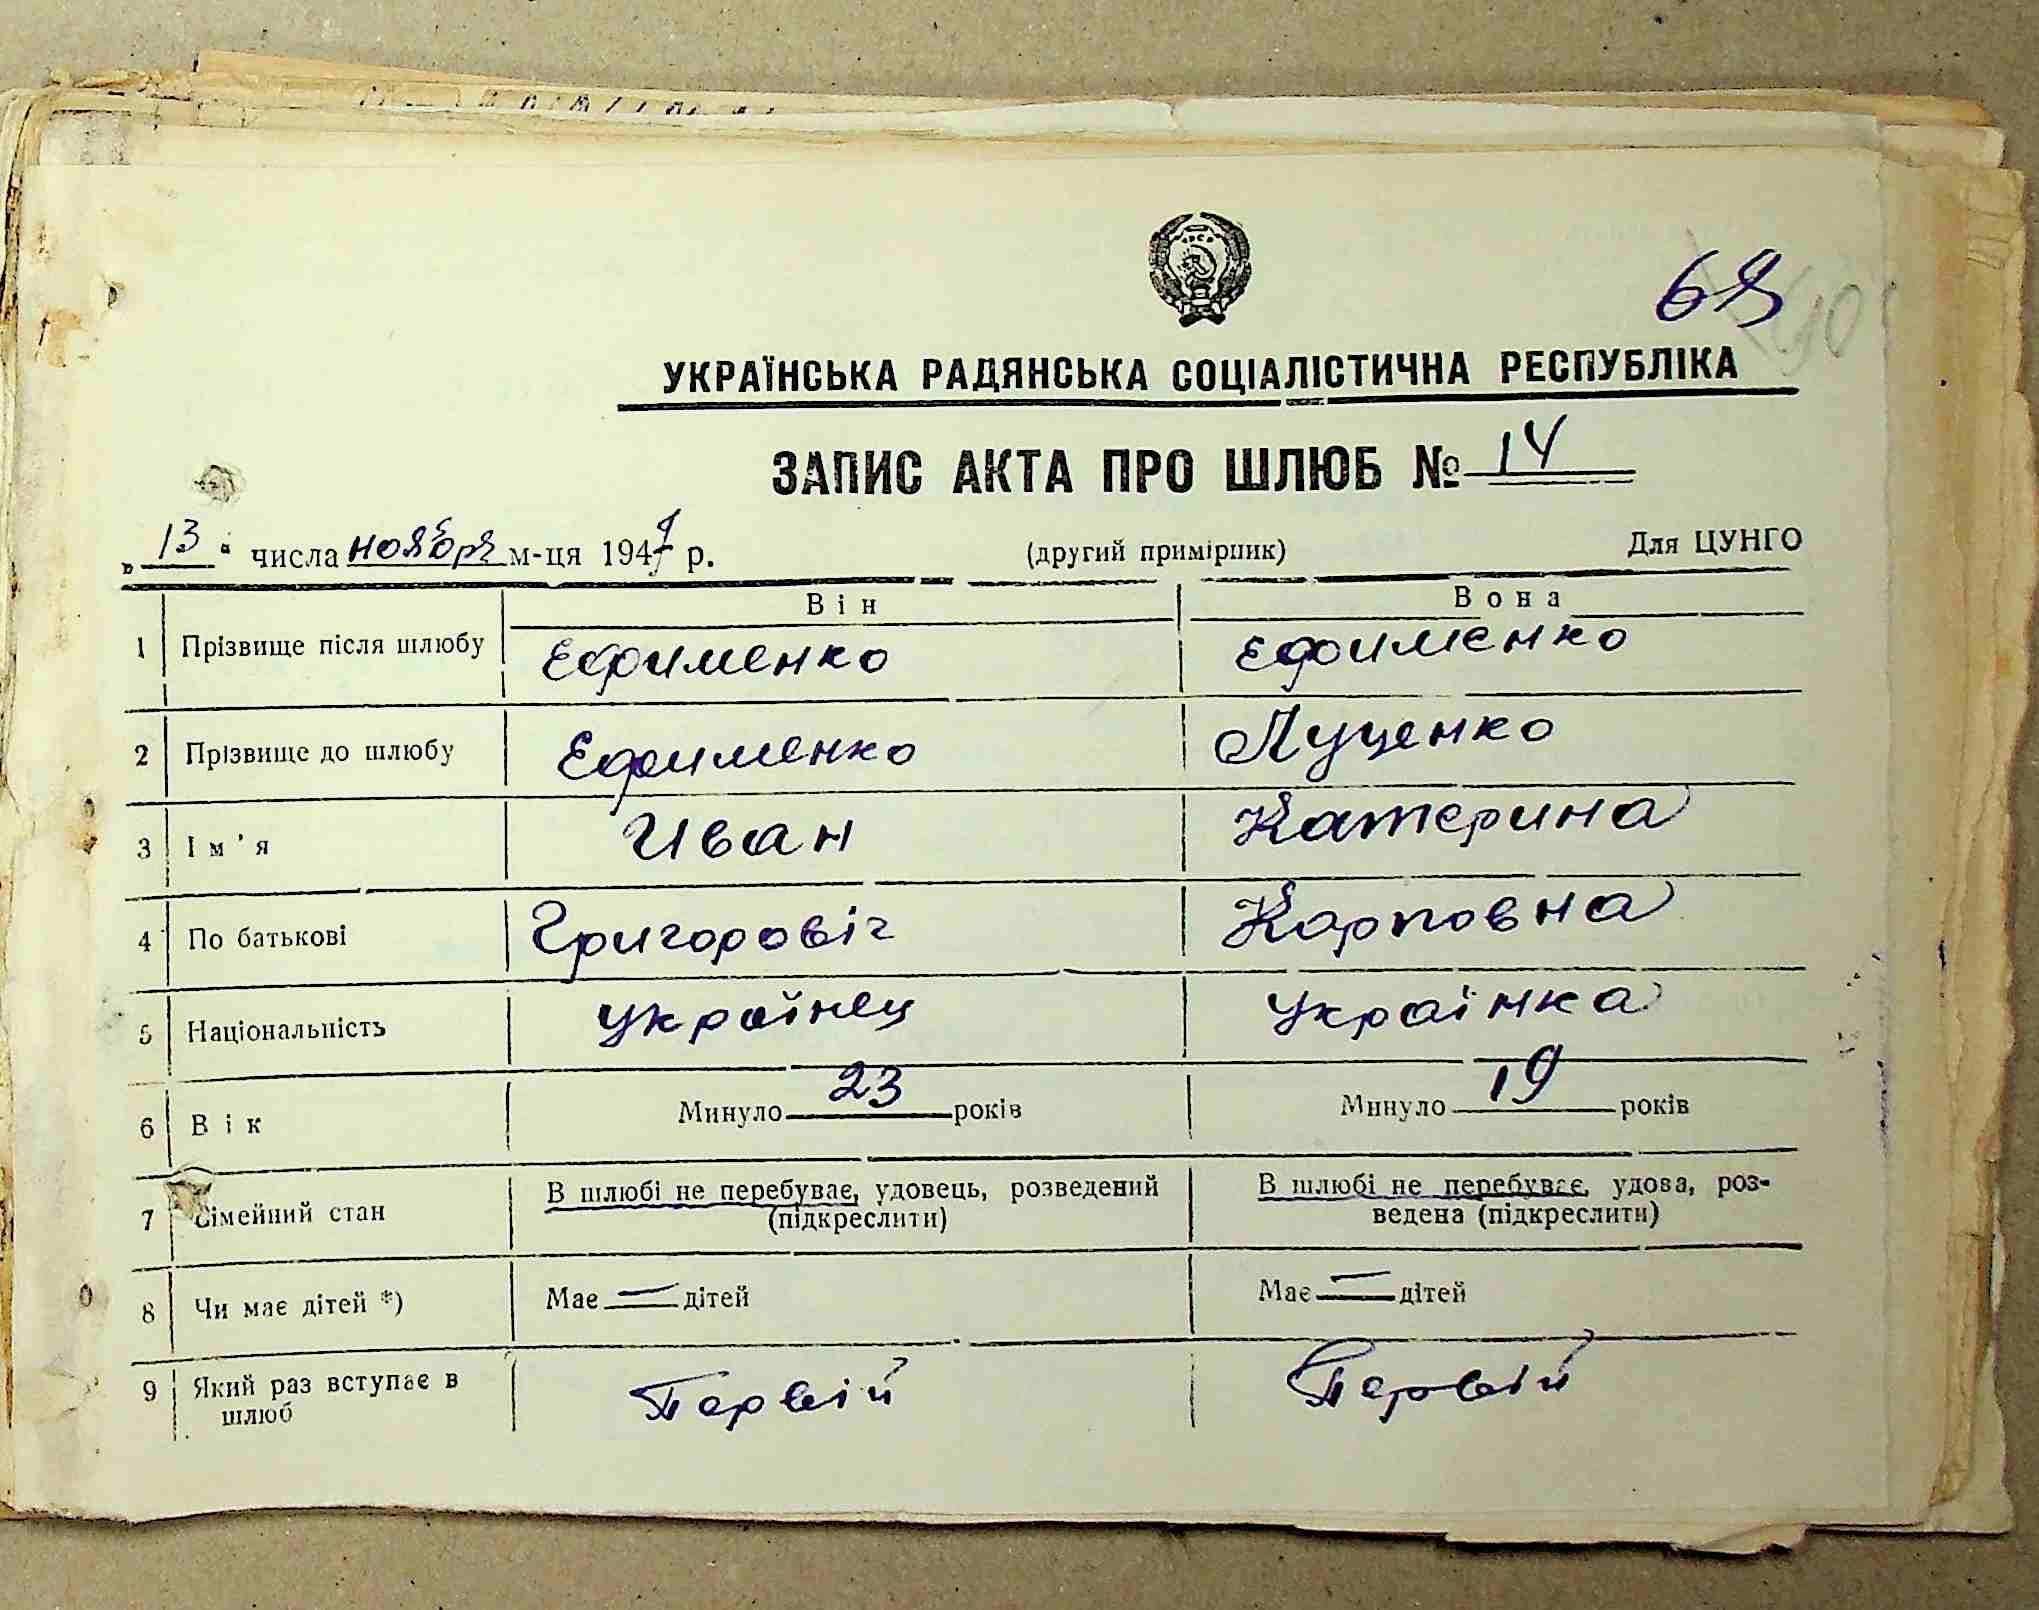 69
УКРАЇНСЬКА РАДЯНСЬКА СОЦІАЛІСТИЧНА РЕСПУБЛІКА
ЗАПИС АКТА ПРО ШЛЮБ № 14
„ 13 “ числа ноября м-ця 1947 р. (другий примірник) Для ЦУНГО
Він Вона
1 Прізвище після шлюбу Ефименко Ефименко
2 Прізвище до шлюбу Ефименко Луценко
3 Ім'я Иван Катерина
4 По батькові Григоровіч Карповна
5 Національність Українец Українка
6 Вік Минуло 23 років Минуло 19 років
7 Сімейний стан В шлюбі не перебуває, удовець, розведений В шлюбі не перебуває, удова, роз-
(підкреслити) ведена (підкреслити)
8 Чи має дітей *) Має — дітей Має — дітей
9 Який раз вступає в Первій Первій
шлюб